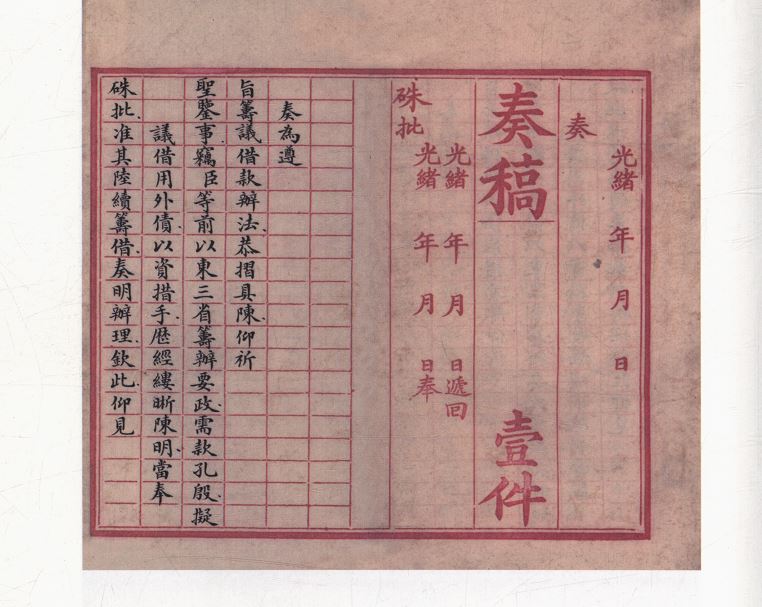 光緒 年 月 日
奏
奏稿 壹件
光緒 年 月 日遞回
硃批 光緒 年 月 日奉
奏為遵
旨籌議借款辦法恭摺具陳仰祈
聖鑒事竊臣等前以東三省籌辦要政需款孔殷擬
議借用外債以資措手歷經縷晰陳明當奉
硃批准其陸續籌借奏明辦理欽此仰見